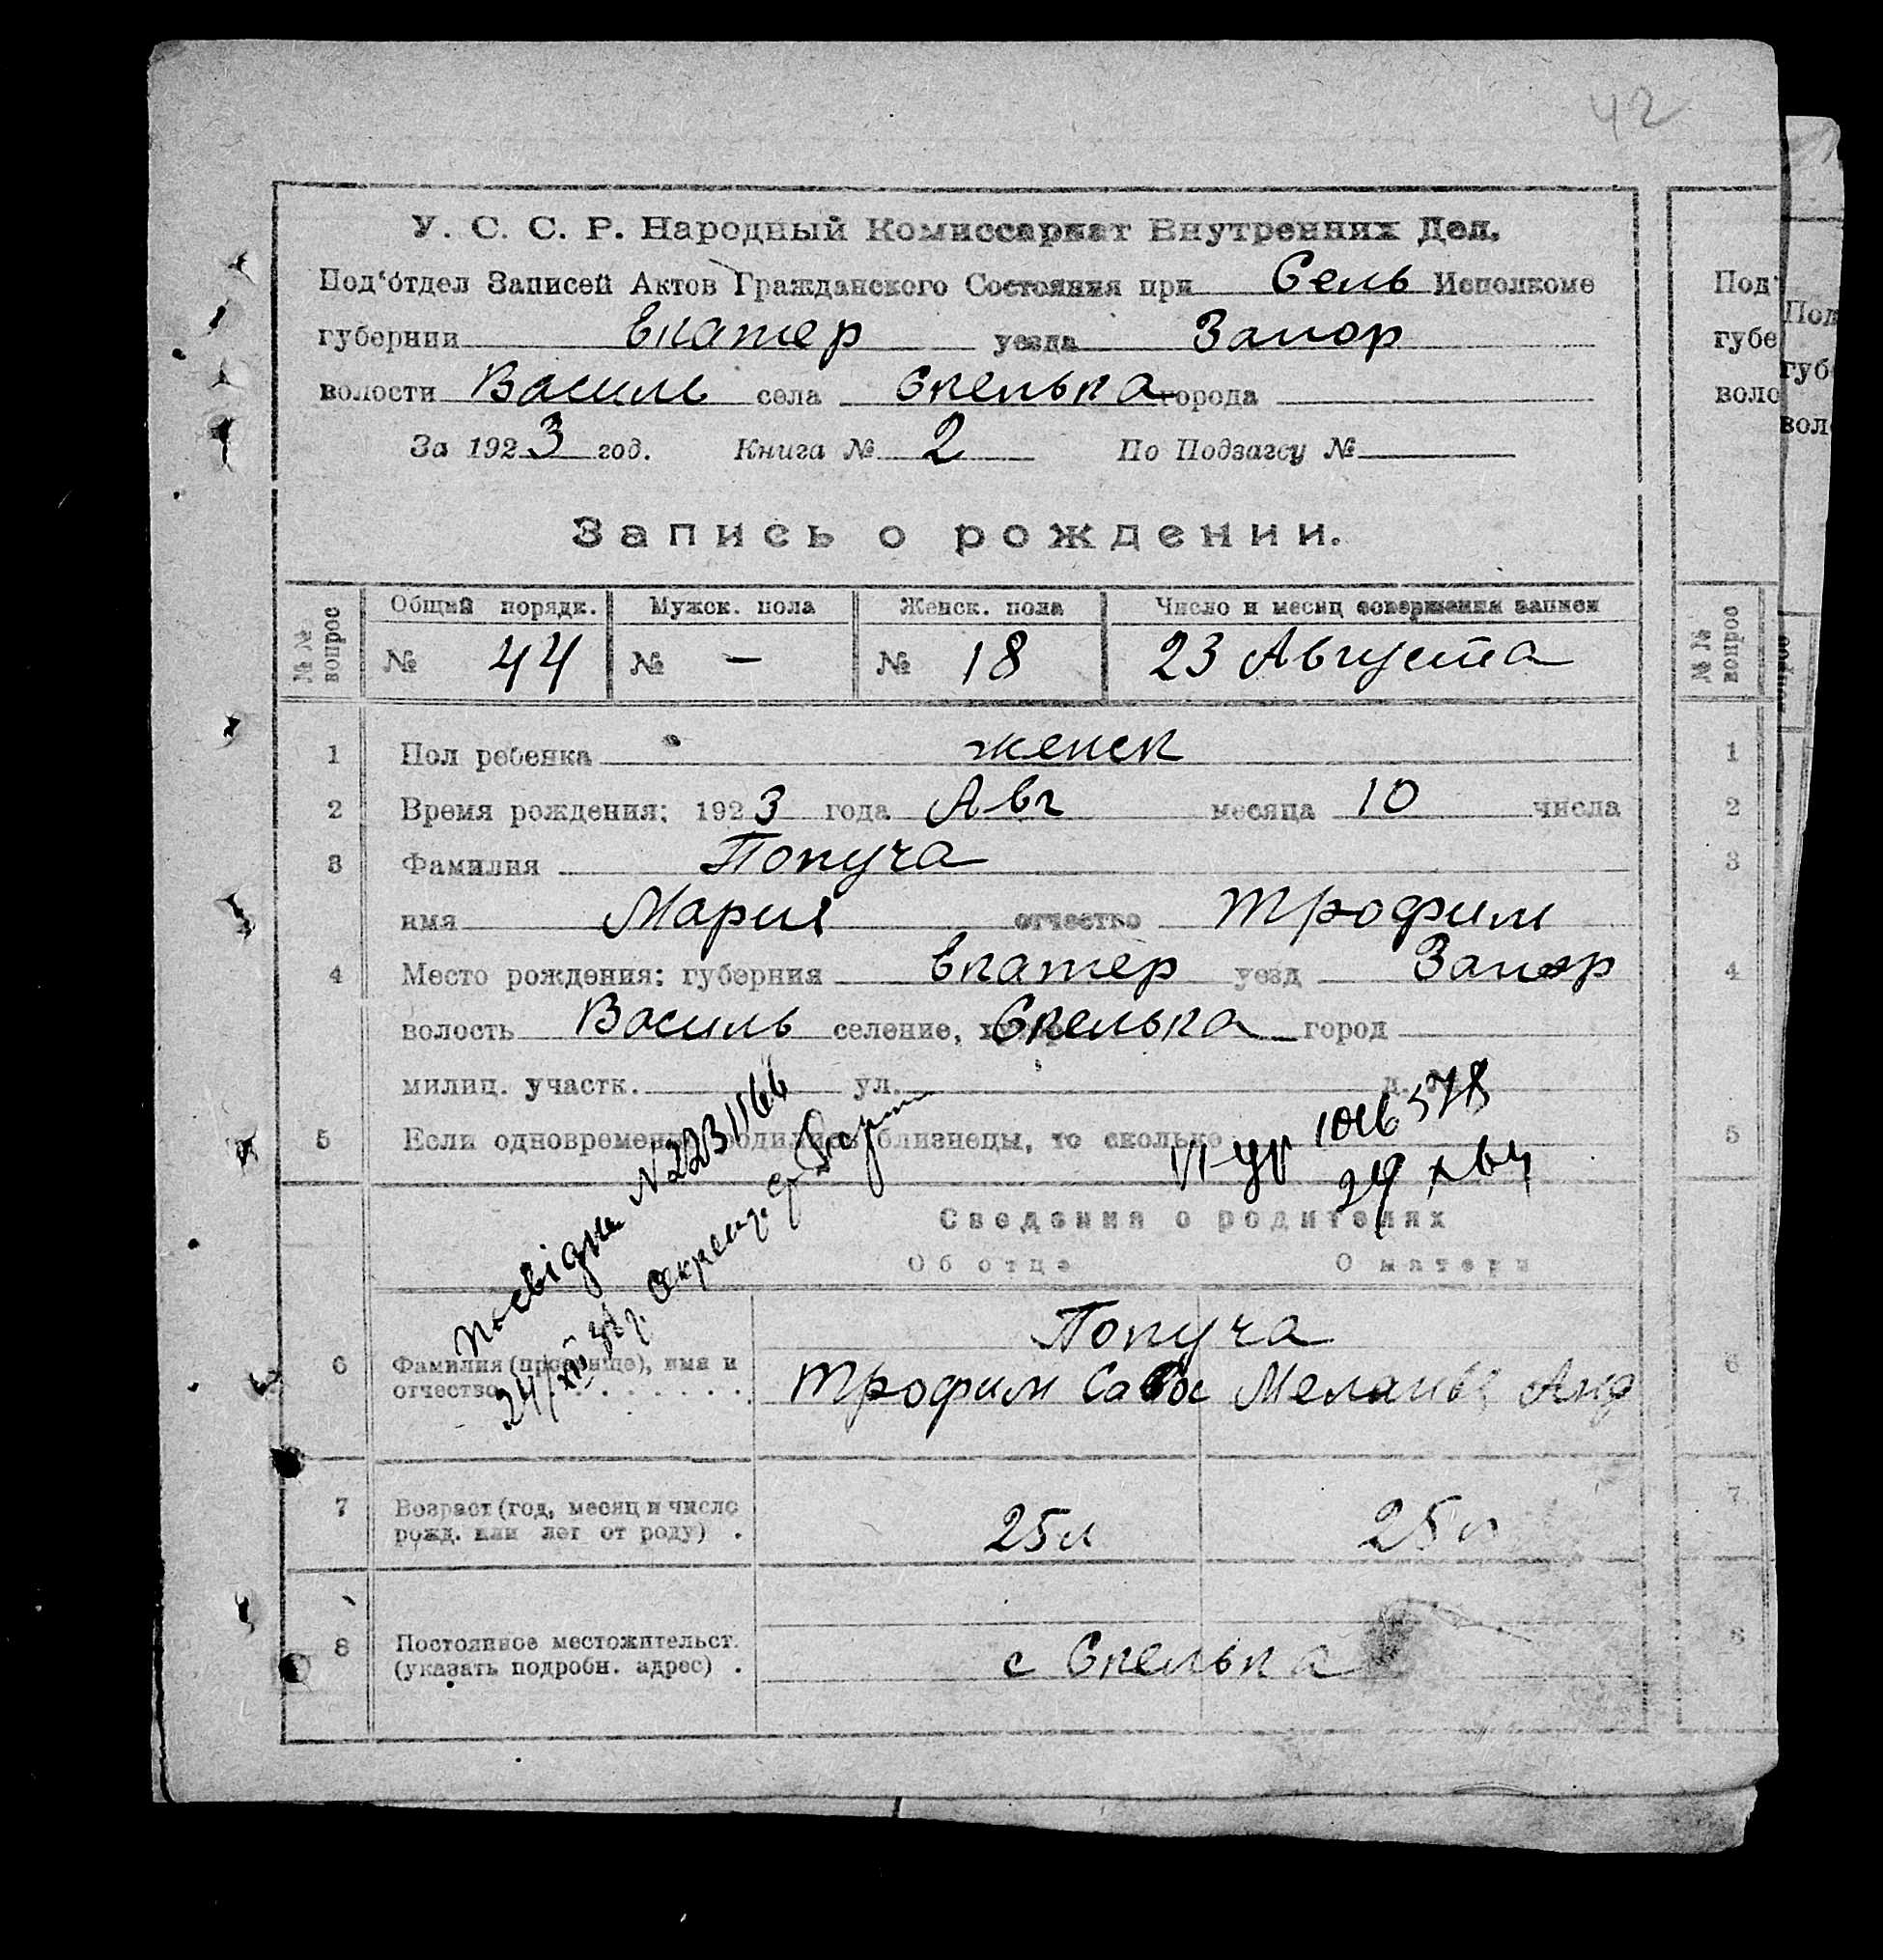 42
У. С. С. Р. Народный Комиссариат Внутренних Дел.
Под‘отдел Записей Актов Гражданского Состояния при Сель Исполкоме
губернии Екатер уезда Запор
волости Василь села Скелька города
За 1923 год. Книга № 2 По Подзагсу №
Запись о рождении.
№ № вопрос Общий порядк. Мужск. пола Женск. пола Число и месяц совершения записи
№ 44 № – № 18 23 Августа
1 Пол ребенка женск
2 Время рождения: 1923 года Авг месяца 10 числа
3 Фамилия Попуча
имя Мария отчество Трофим
4 Место рождения: губерния Екатер уезд Запор
волость Василь селение, Скелька город
милиц. участк. ул. д.
5 Если одновременно родились близнецы, то сколько
578
29 X 64
посвідчен №2231166
24/XII
Сведения о родителях
Об отце О матери
Попуча
6 Фамилия (прозвище), имя и
отчество Трофим Савы Мелания Анд
7 Возраст (год, месяц и число
рожд. или лет от роду) . 25 л 25 л
8 Постоянное местожительст.
(указать подробн. адрес) . с Скелька
Под‘
губе
воло
№ № вопрос
1
2
3
4
5
6
7
8
Под
губ
вол